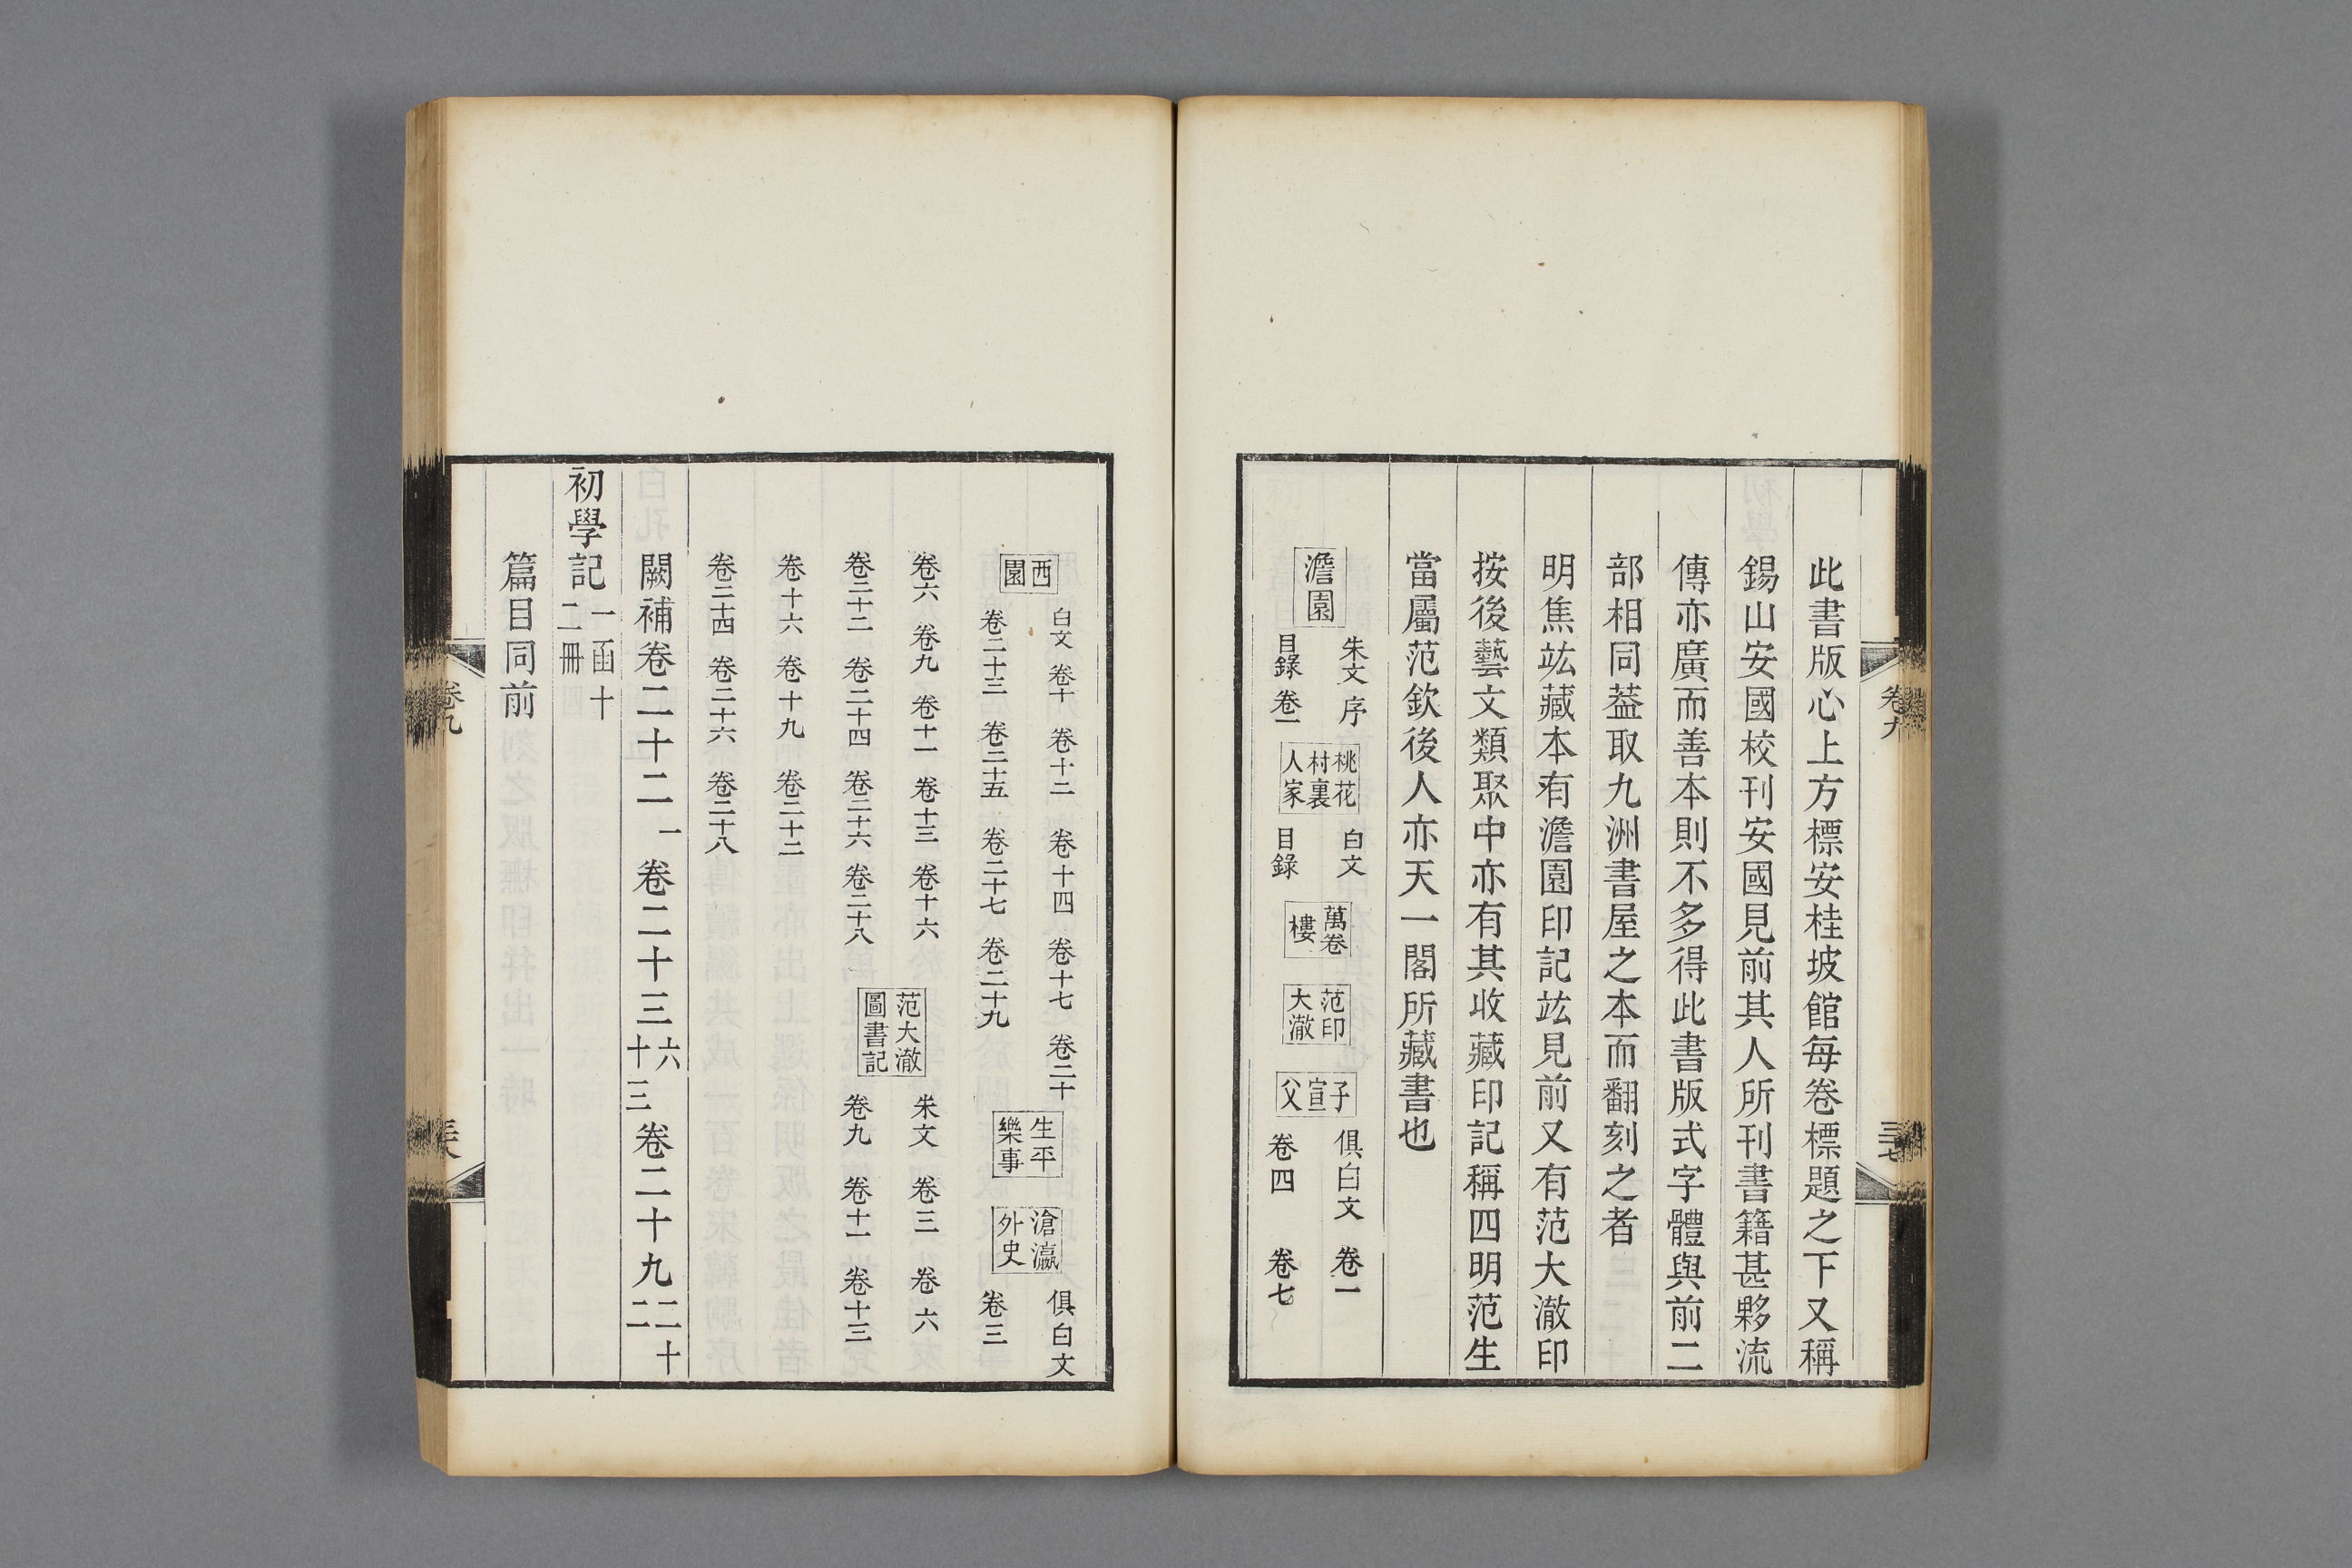 此書版心上方標安桂坡館每卷標題之下又稱
錫山安國校刊安國見前其人所刊書籍甚夥流
傳亦廣而善本則不多得此書版式字體與前二
部相同葢取九洲書屋之本而翻刻之者
明焦竑藏本有澹園印記竑見前又有范大澈印
按後藝文類聚中亦有其收藏印記稱四明范生
當屬范欽後人亦天一閣所藏書也
澹園
朱文 序
目錄 卷一
桃花
村裏
人家
白文
目錄
萬卷
樓
范印
大澈
子
宣
父
俱白文 卷一
卷四 卷七
卷九
三十七
西
園
白文 卷十 卷十二 卷十四 卷十七 卷二十
卷二十三 卷二十五 卷二十七 卷二十九
生平
樂事
滄瀛
外史
俱白文
卷三
卷六 卷九 卷十一 卷十三 卷十六
卷二十二 卷二十四 卷二十六 卷二十八
范大澈
圖書記
朱文 卷三 卷六
卷九 卷十一 卷十三
卷十六 卷十九 卷二十二
卷二十四 卷二十六 卷二十八
闕補卷二十二 一 卷二十三 六 十三 卷二十九 二十 二
初學記 一函十
二冊
篇目同前
卷九